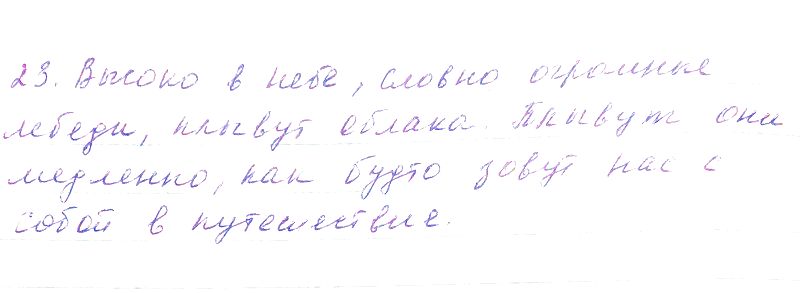 23. Высоко в небе, словно огромные
лебеди, плывут облака. Плывут они
медленно, как будто зовут нас с
собой в путешествие.